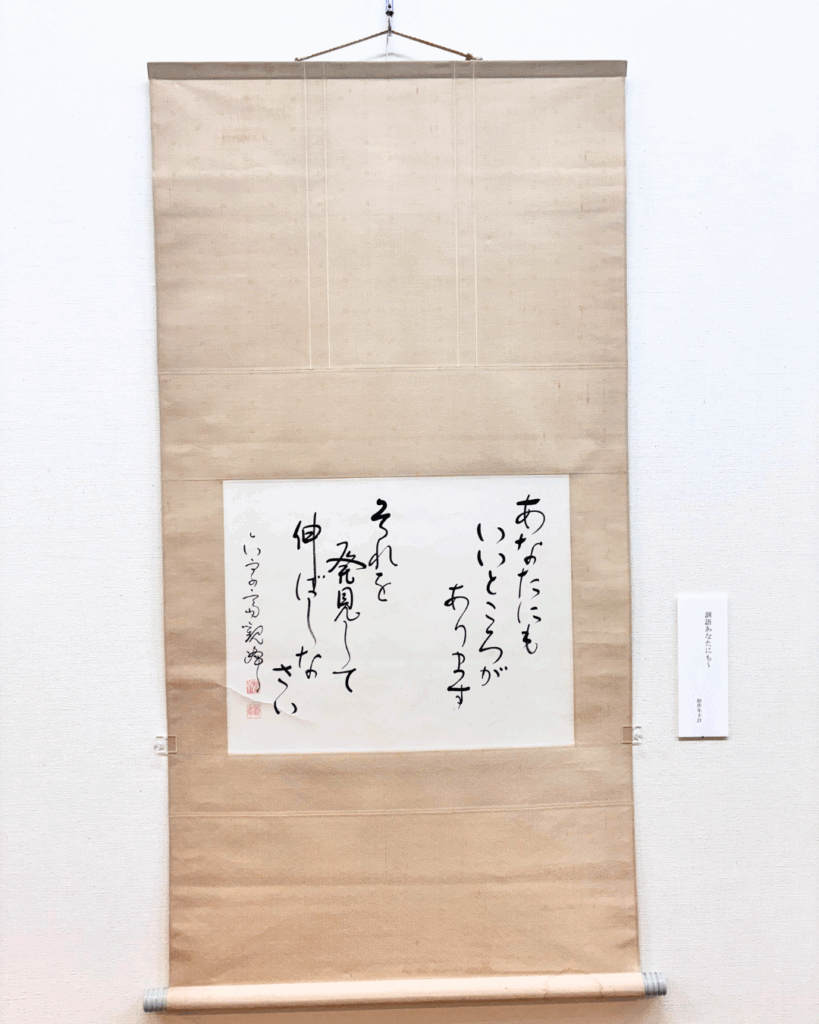 あなたにも
いいところが
あります
それを
発見して
伸ばしな
さい
訓語あなたにも〜